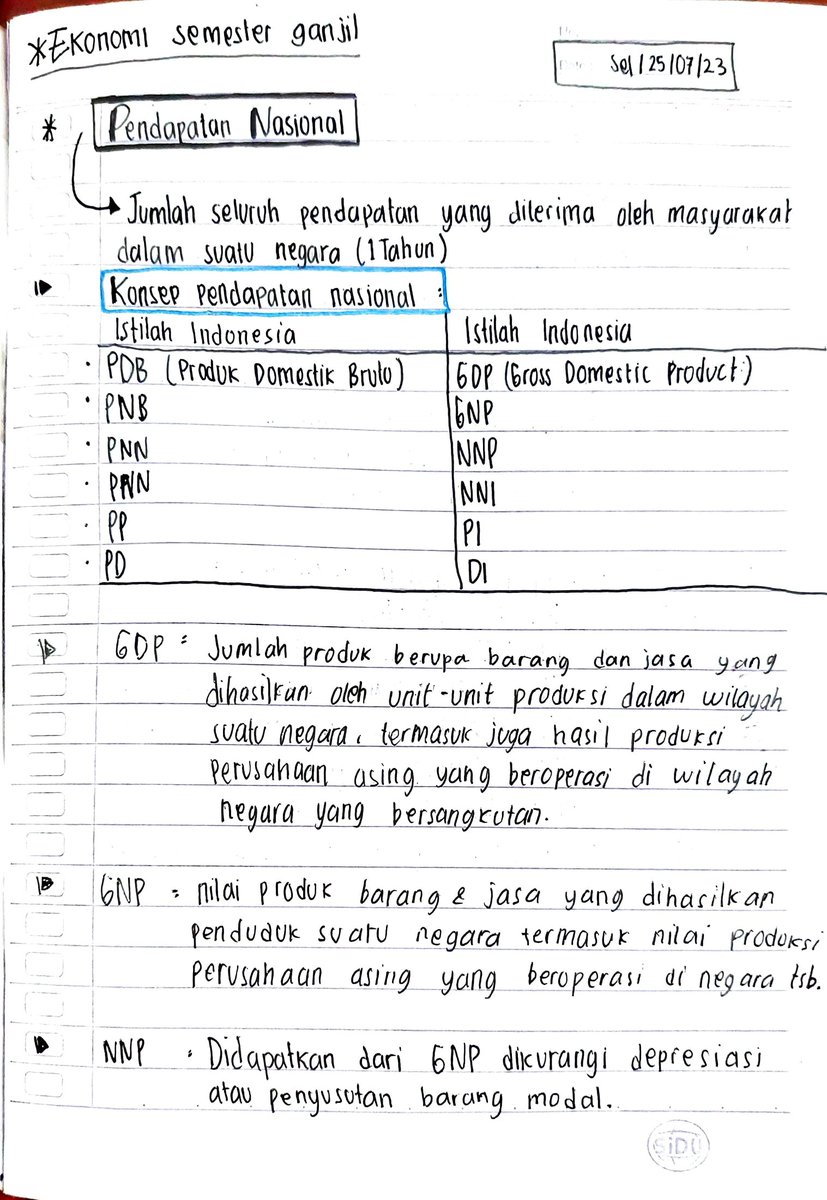 *Ekonomi semester ganjil
Sel/25/07/23
* Pendapatan Nasional
Jumlah seluruh pendapatan yang diterima oleh masyarakat
dalam suatu negara (1 Tahun)
Konsep pendapatan nasional :
Istilah Indonesia Istilah Indonesia
• PDB (Produk Domestik Bruto) GDP (Gross Domestic Product)
• PNB GNP
• PNN NNP
• PNN NNI
• PP PI
• PD DI
GDP : Jumlah produk berupa barang dan jasa yang
dihasilkan oleh unit-unit produksi dalam wilayah
suatu negara, termasuk juga hasil produksi
perusahaan asing yang beroperasi di wilayah
negara yang bersangkutan.
GNP : nilai produk barang & jasa yang dihasilkan
penduduk suatu negara termasuk nilai produksi
perusahaan asing yang beroperasi di negara tsb.
NNP : Didapatkan dari GNP dikurangi depresiasi
atau penyusutan barang modal.
SiDU